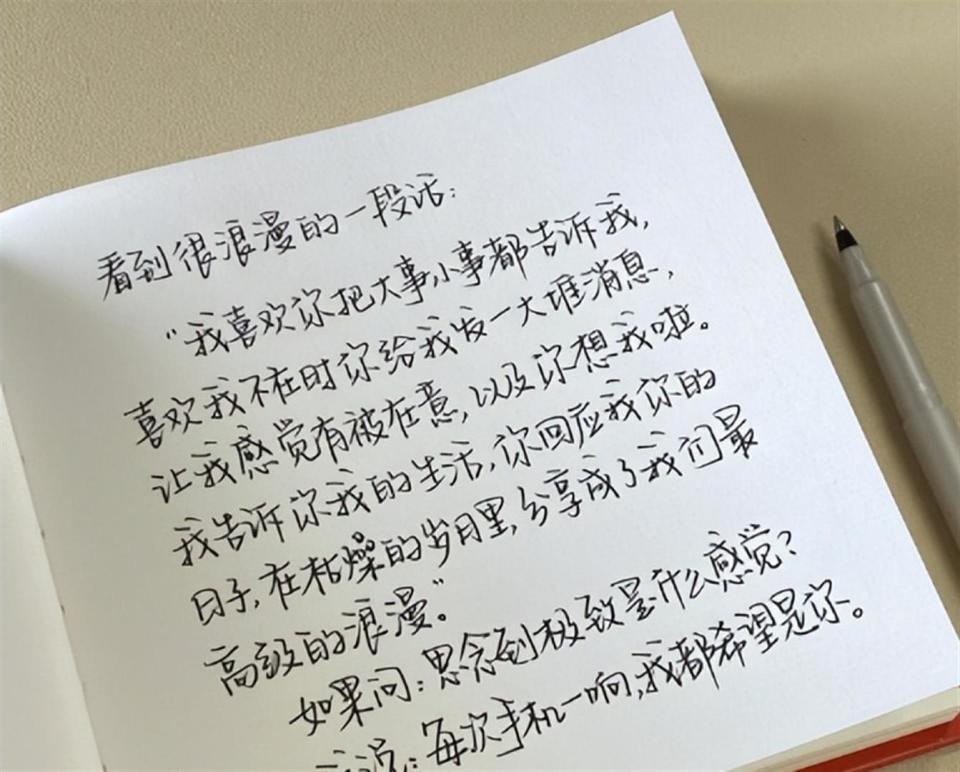 看到很浪漫的一段话:
“我喜欢你把大事小事都告诉我,
喜欢我不在时你给我发一大堆消息,
让我感觉有被在意,以及你想我啦。
我告诉你我的生活,你回应我你的
日子,在枯燥的岁月里,分享成了我们最
高级的浪漫。”
如果问:思念到极致是什么感觉?
说:每次手机一响,我都希望是你。